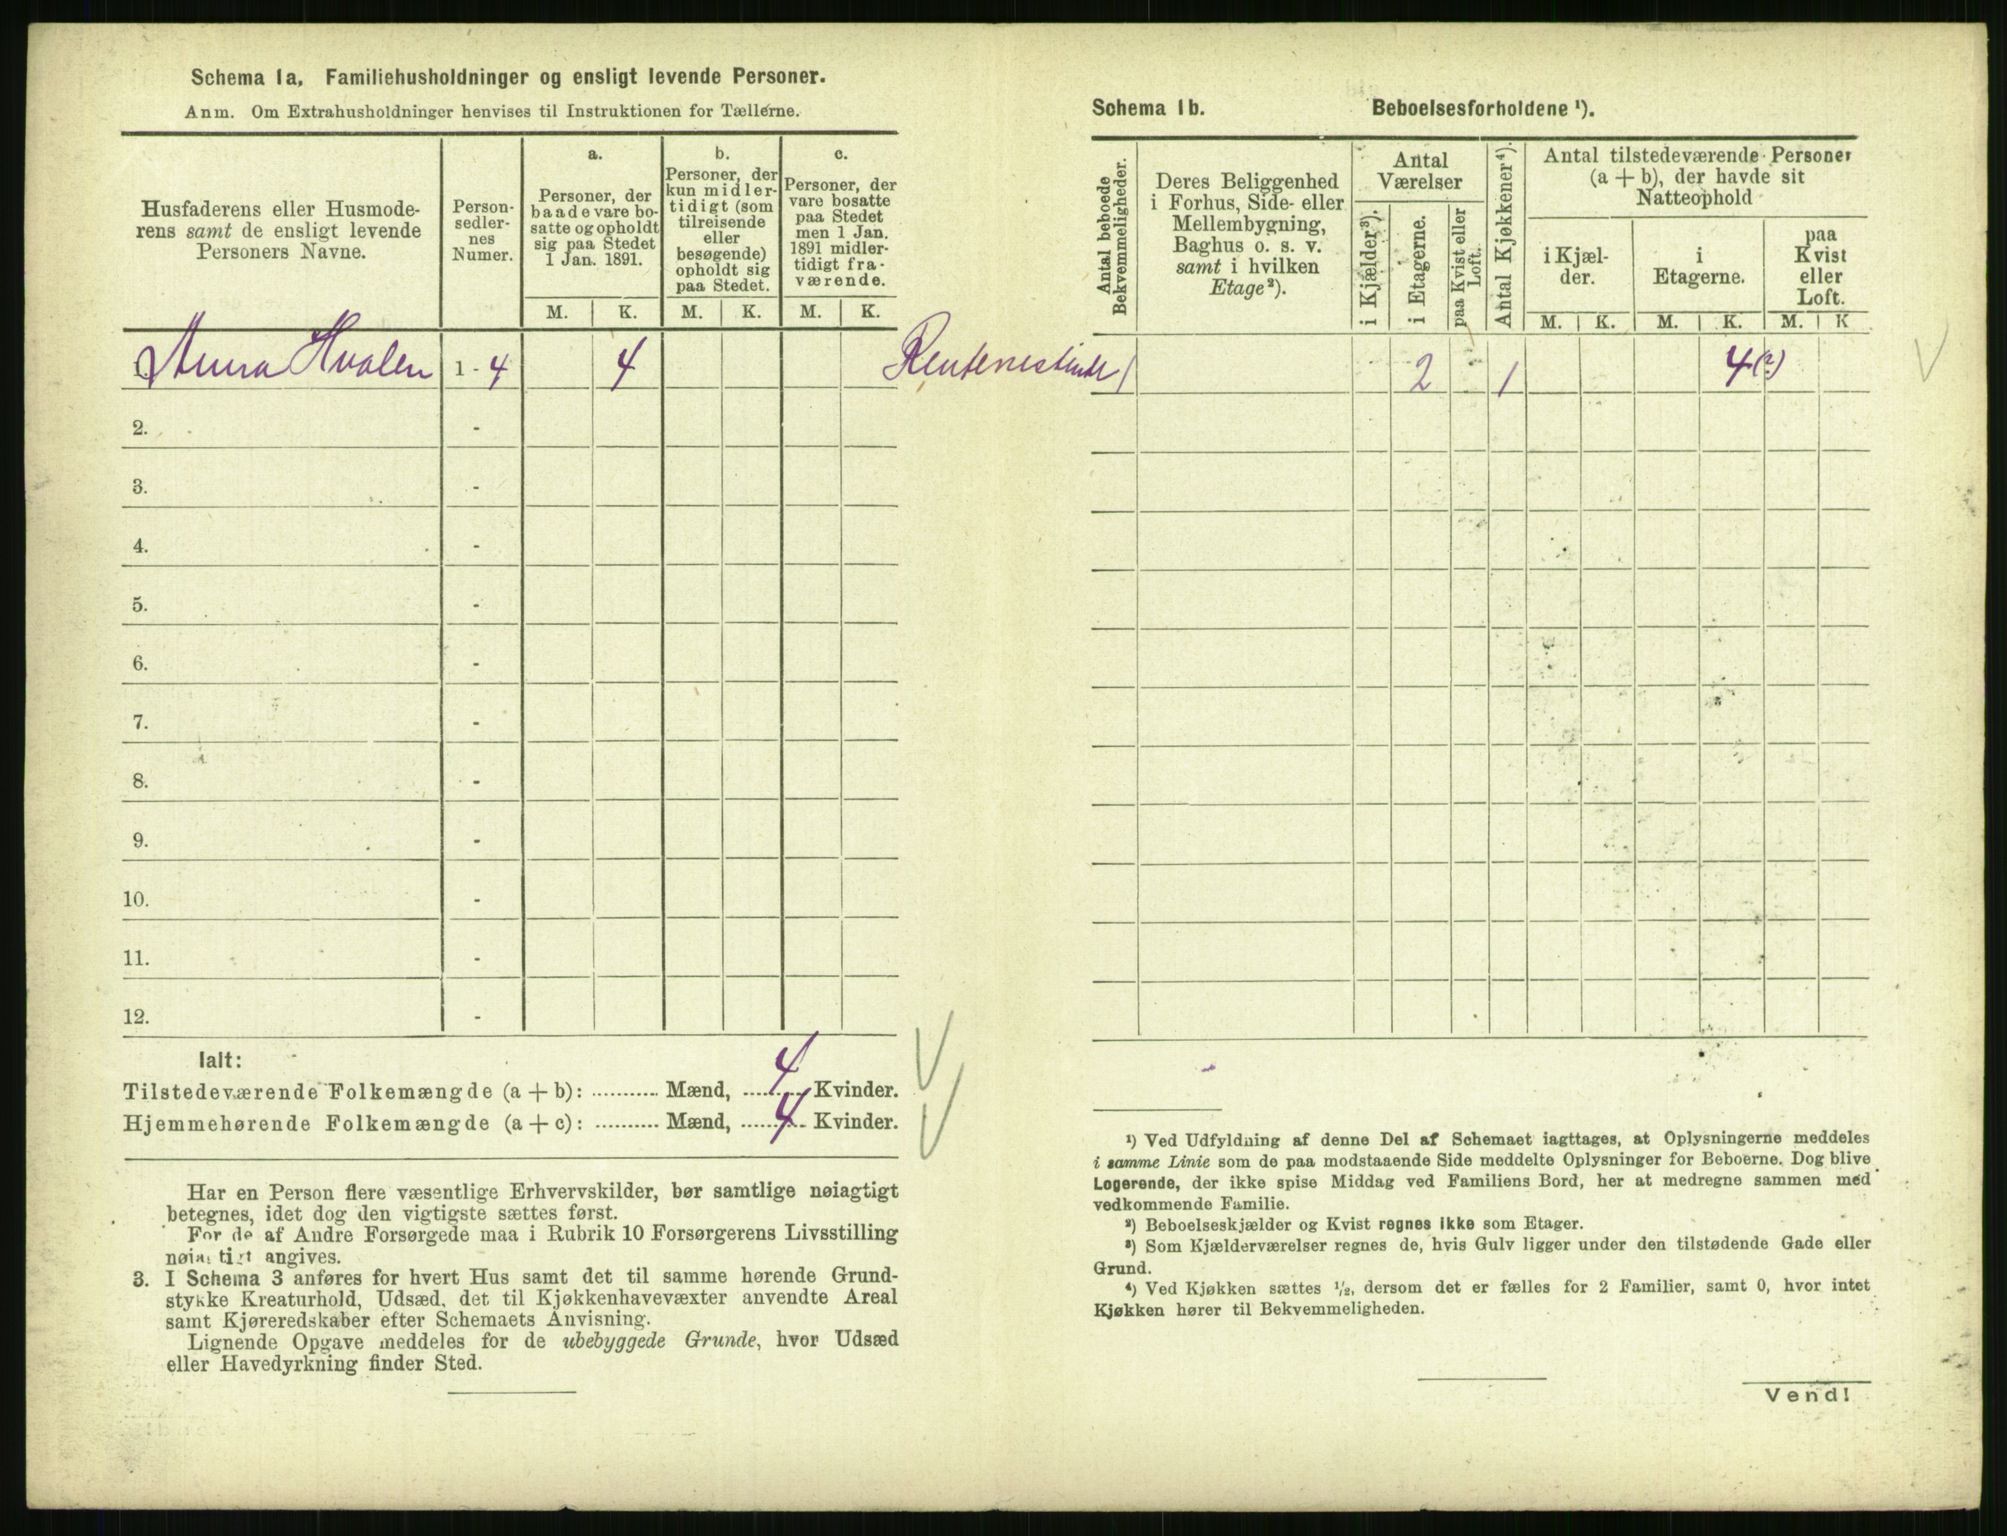 Schema 1a. Familiehusholdninger og ensligt levende Personer.
Anm. Om Extrahusholdninger henvises til Instruktionen for Tællerne.
Husfaderens eller Husmode-
rens samt de ensligt levende
Personers Navne.
Person-
sedler-
nes
Numer.
a.
Personer, der
baade vare bo-
satte og opholdt
sig paa Stedet
1 Jan. 1891.
b.
Personer, der
kun midler-
tidigt (som
tilreisende
eller
besøgende)
opholdt sig
paa Stedet.
c.
Personer, der
vare bosatte
paa Stedet
men 1 Jan.
1891 midler-
tidigt fra-
værende.
M. K. M. K. M. K.
1. Anna Hvalen 1 - 4 4
2. -
3. -
4. -
5. -
6. -
7. -
8. -
9. -
10. -
11. -
12. -
Ialt:
Tilstedeværende Folkemængde (a + b): ........... Mænd, 4 Kvinder.
Hjemmehørende Folkemængde (a + c): ........... Mænd, 4 Kvinder.
Har en Person flere væsentlige Erhvervskilder, bør samtlige nøiagtigt
betegnes, idet dog den vigtigste sættes først.
For de af Andre Forsørgede maa i Rubrik 10 Forsørgerens Livsstilling
nøiagtigt angives.
3. I Schema 3 anføres for hvert Hus samt det til samme hørende Grund-
stykke Kreaturhold, Udsæd, det til Kjøkkenhavevæxter anvendte Areal
samt Kjøreredskaber efter Schemaets Anvisning.
Lignende Opgave meddeles for de ubebyggede Grunde, hvor Udsæd
eller Havedyrkning finder Sted.
Schema 1b. Beboelsesforholdene ¹).
Antal beboede
Bekvemmeligheder.
Deres Beliggenhed
i Forhus, Side- eller
Mellembygning,
Baghus o. s. v.
samt i hvilken
Etage²).
Antal
Værelser
i Kjælder³).
i Etagerne.
paa Kvist eller
Loft.
Antal Kjøkkener⁴).
Antal tilstedeværende Personer
(a + b), der havde sit
Natteophold
i Kjæl-
der.
i
Etagerne.
paa
Kvist
eller
Loft.
M. K. M. K. M. K
1 2 1 4(2)
¹) Ved Udfyldning af denne Del af Schemaet iagttages, at Oplysningerne meddeles
i samme Linie som de paa modstaaende Side meddelte Oplysninger for Beboerne. Dog blive
Logerende, der ikke spise Middag ved Familiens Bord, her at medregne sammen med
vedkommende Familie.
²) Beboelseskjælder og Kvist regnes ikke som Etager.
³) Som Kjælderværelser regnes de, hvis Gulv ligger under den tilstødende Gade eller
Grund.
⁴) Ved Kjøkken sættes ¹/₂, dersom det er fælles for 2 Familier, samt 0, hvor intet
Kjøkken hører til Bekvemmeligheden.
Vend!